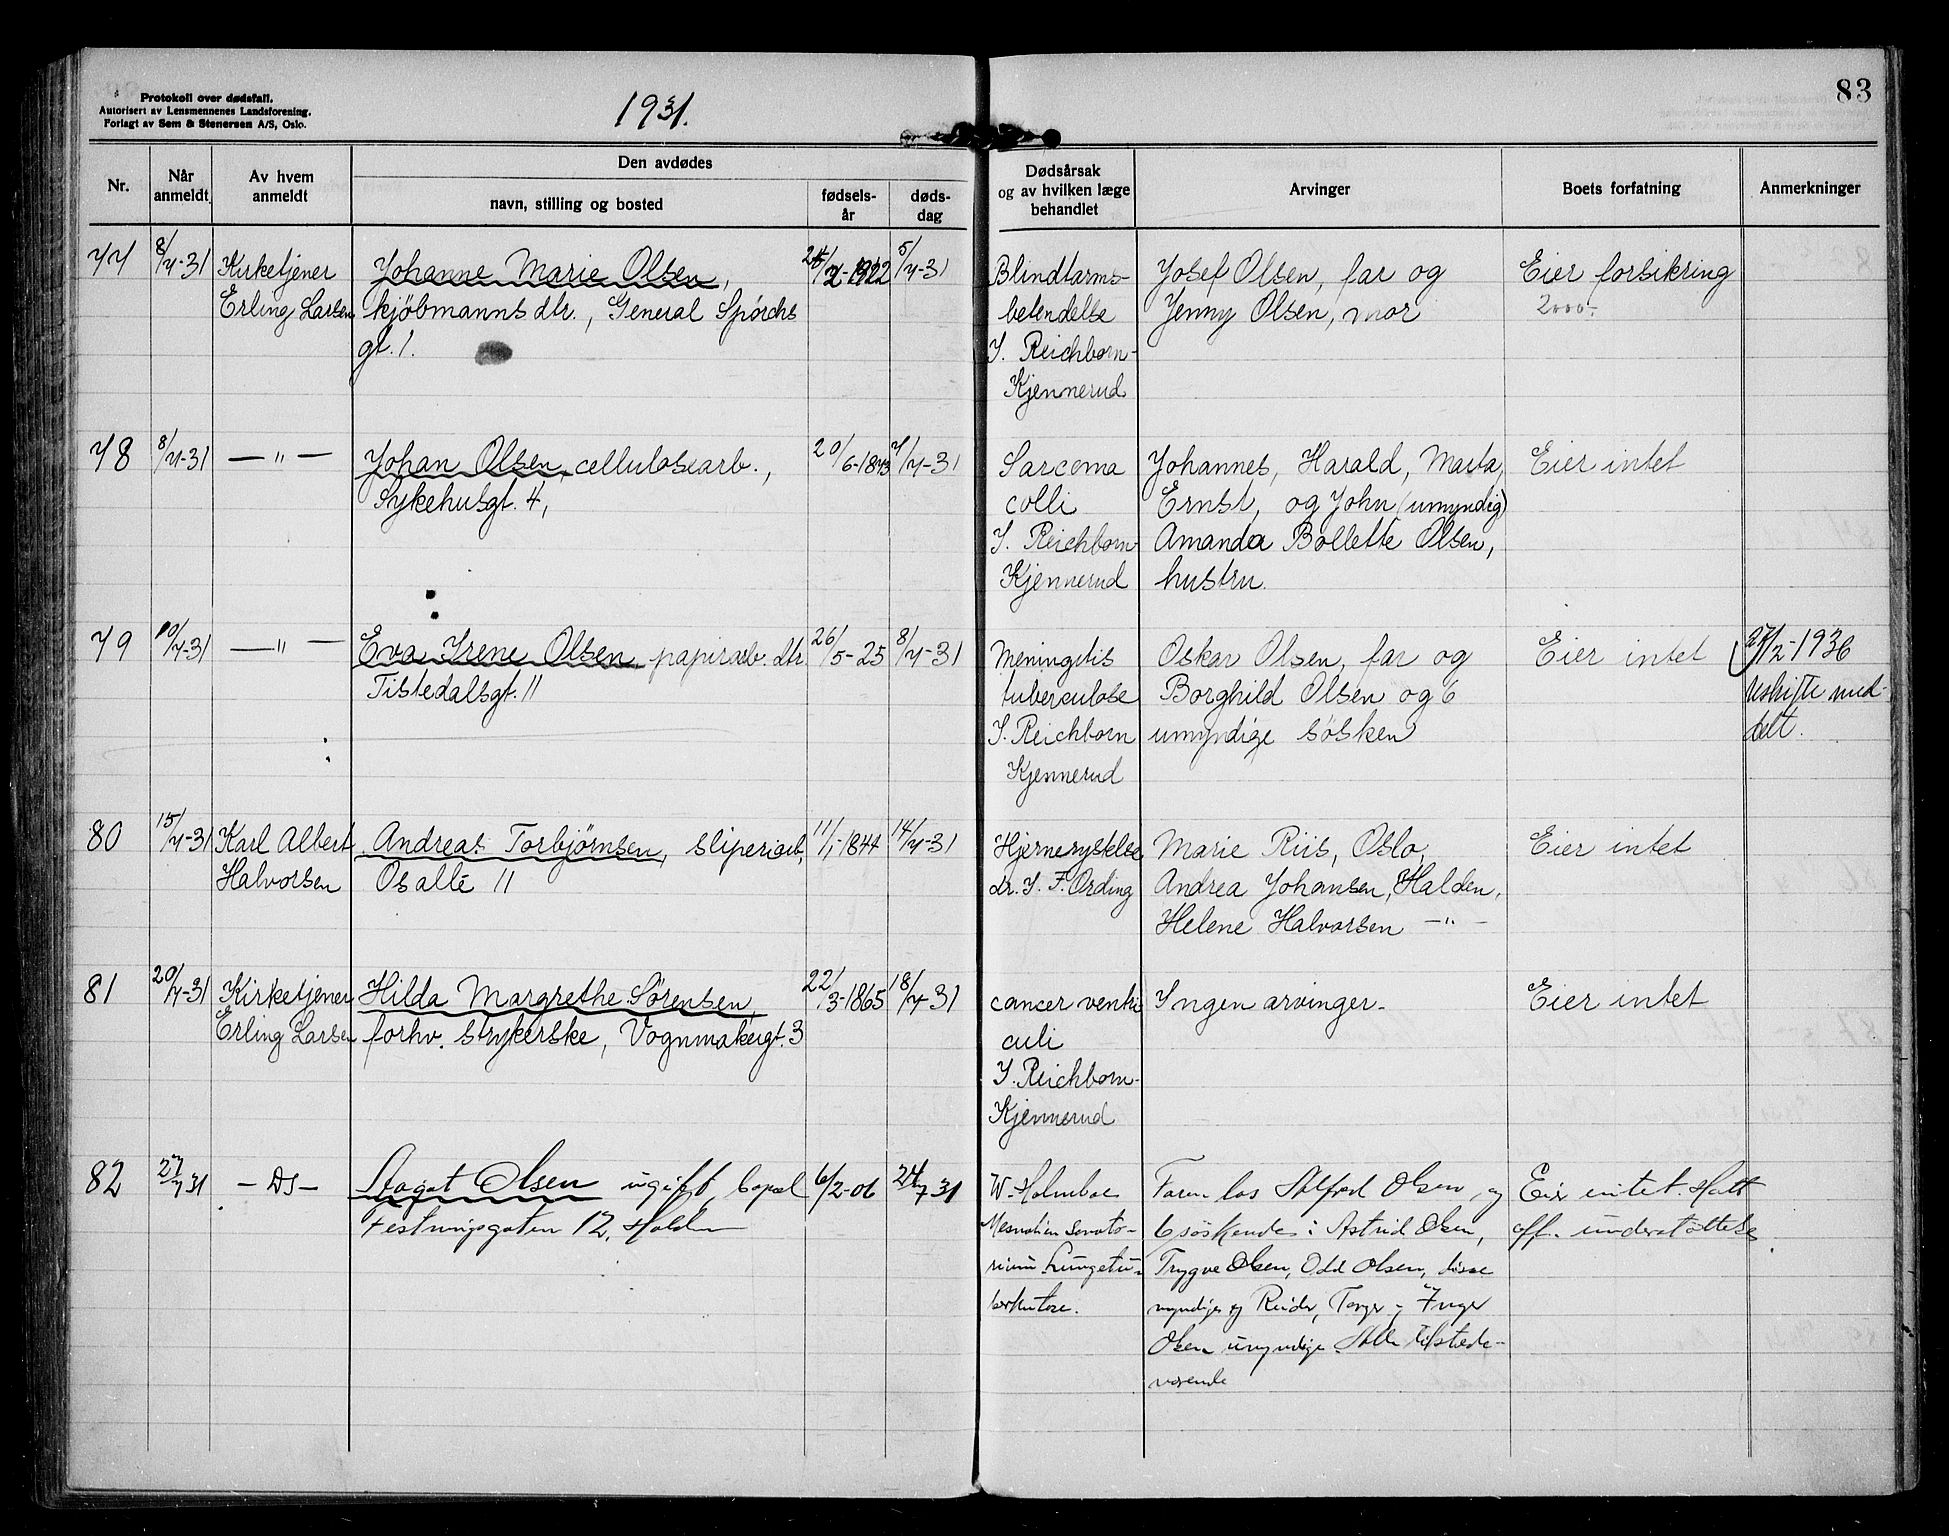 Protokoll over dødsfall.
Autorisert av Lensmennenes Landsforening.
Forlagt av Sem & Stenersen A/S, Oslo.
1931.
83
Nr.
Når anmeldt
Av hvem anmeldt
Den avdødes
navn, stilling og bosted
fødsels-år
døds-dag
Dødsårsak og av hvilken læge behandlet
Arvinger
Boets forfatning
Anmerkninger
77 8/7-31 Kirketjener Johanne Marie Olsen, 24/2-1922 5/7-31 Blindtarms- Josef Olsen, far og Eier forsikring
Erling Larsen kjøbmanns dtr., General Spørchs betendelse Jenny Olsen, mor 2000.-
gt. 1. I. Reichborn-
Kjennerud
78 8/7-31 — " — Johan Olsen, cellulosearb., 20/6-1873 7/7-31 Sarcoma Johannes, Harald, Marta, Eier intet
Sykehusgt. 4, colli Ernst, og John (umyndig)
I. Reichborn- Amanda Bollette Olsen,
Kjennerud hustru.
79 10/7-31 — " — Eva Irene Olsen, papirarb. dtr 26/5-25 8/7-31 Meningitis Oskar Olsen, far og Eier intet 27/2-1936
Tistedalsgt. 11 tuberculose Borghild Olsen og 6 Uskifte med-
I. Reichborn umyndige søsken delt.
Kjennerud
80 15/7-31 Karl Albert Andreas Torbjørnsen, sliperiarb, 11/1-1844 14/7-31 Hjernerystelse Marie Riis, Oslo, Eier intet
Halvorsen Os allé 11 dr. I. F. Ording Andrea Johansen, Halden,
Helene Halvorsen — " —
81 20/7-31 Kirketjener Hilda Margrethe Sørensen, 22/3-1865 18/7-31 cancer ventri Ingen arvinger. Eier intet
Erling Larsen forhv. strykerske, Vognmakergt. 3 culi
I. Reichborn-
Kjennerud
82 27/7 31 — Ds — Aagot Olsen ugift, bopæl 6/2-06 24/7 31 W. Holmboe Faren Alfred Olsen, og Eier intet. Hatt
Festningsgaten 12, Halden Mesnalien Sanato- 6 søskende: Astrid Olsen, off. understøttelse
rium Lungetu- Trygve Olsen, Odd Olsen, disse
berkulose. myndige og Reidar, og Inger
Olsen umyndige. Alle tilstede-
værende